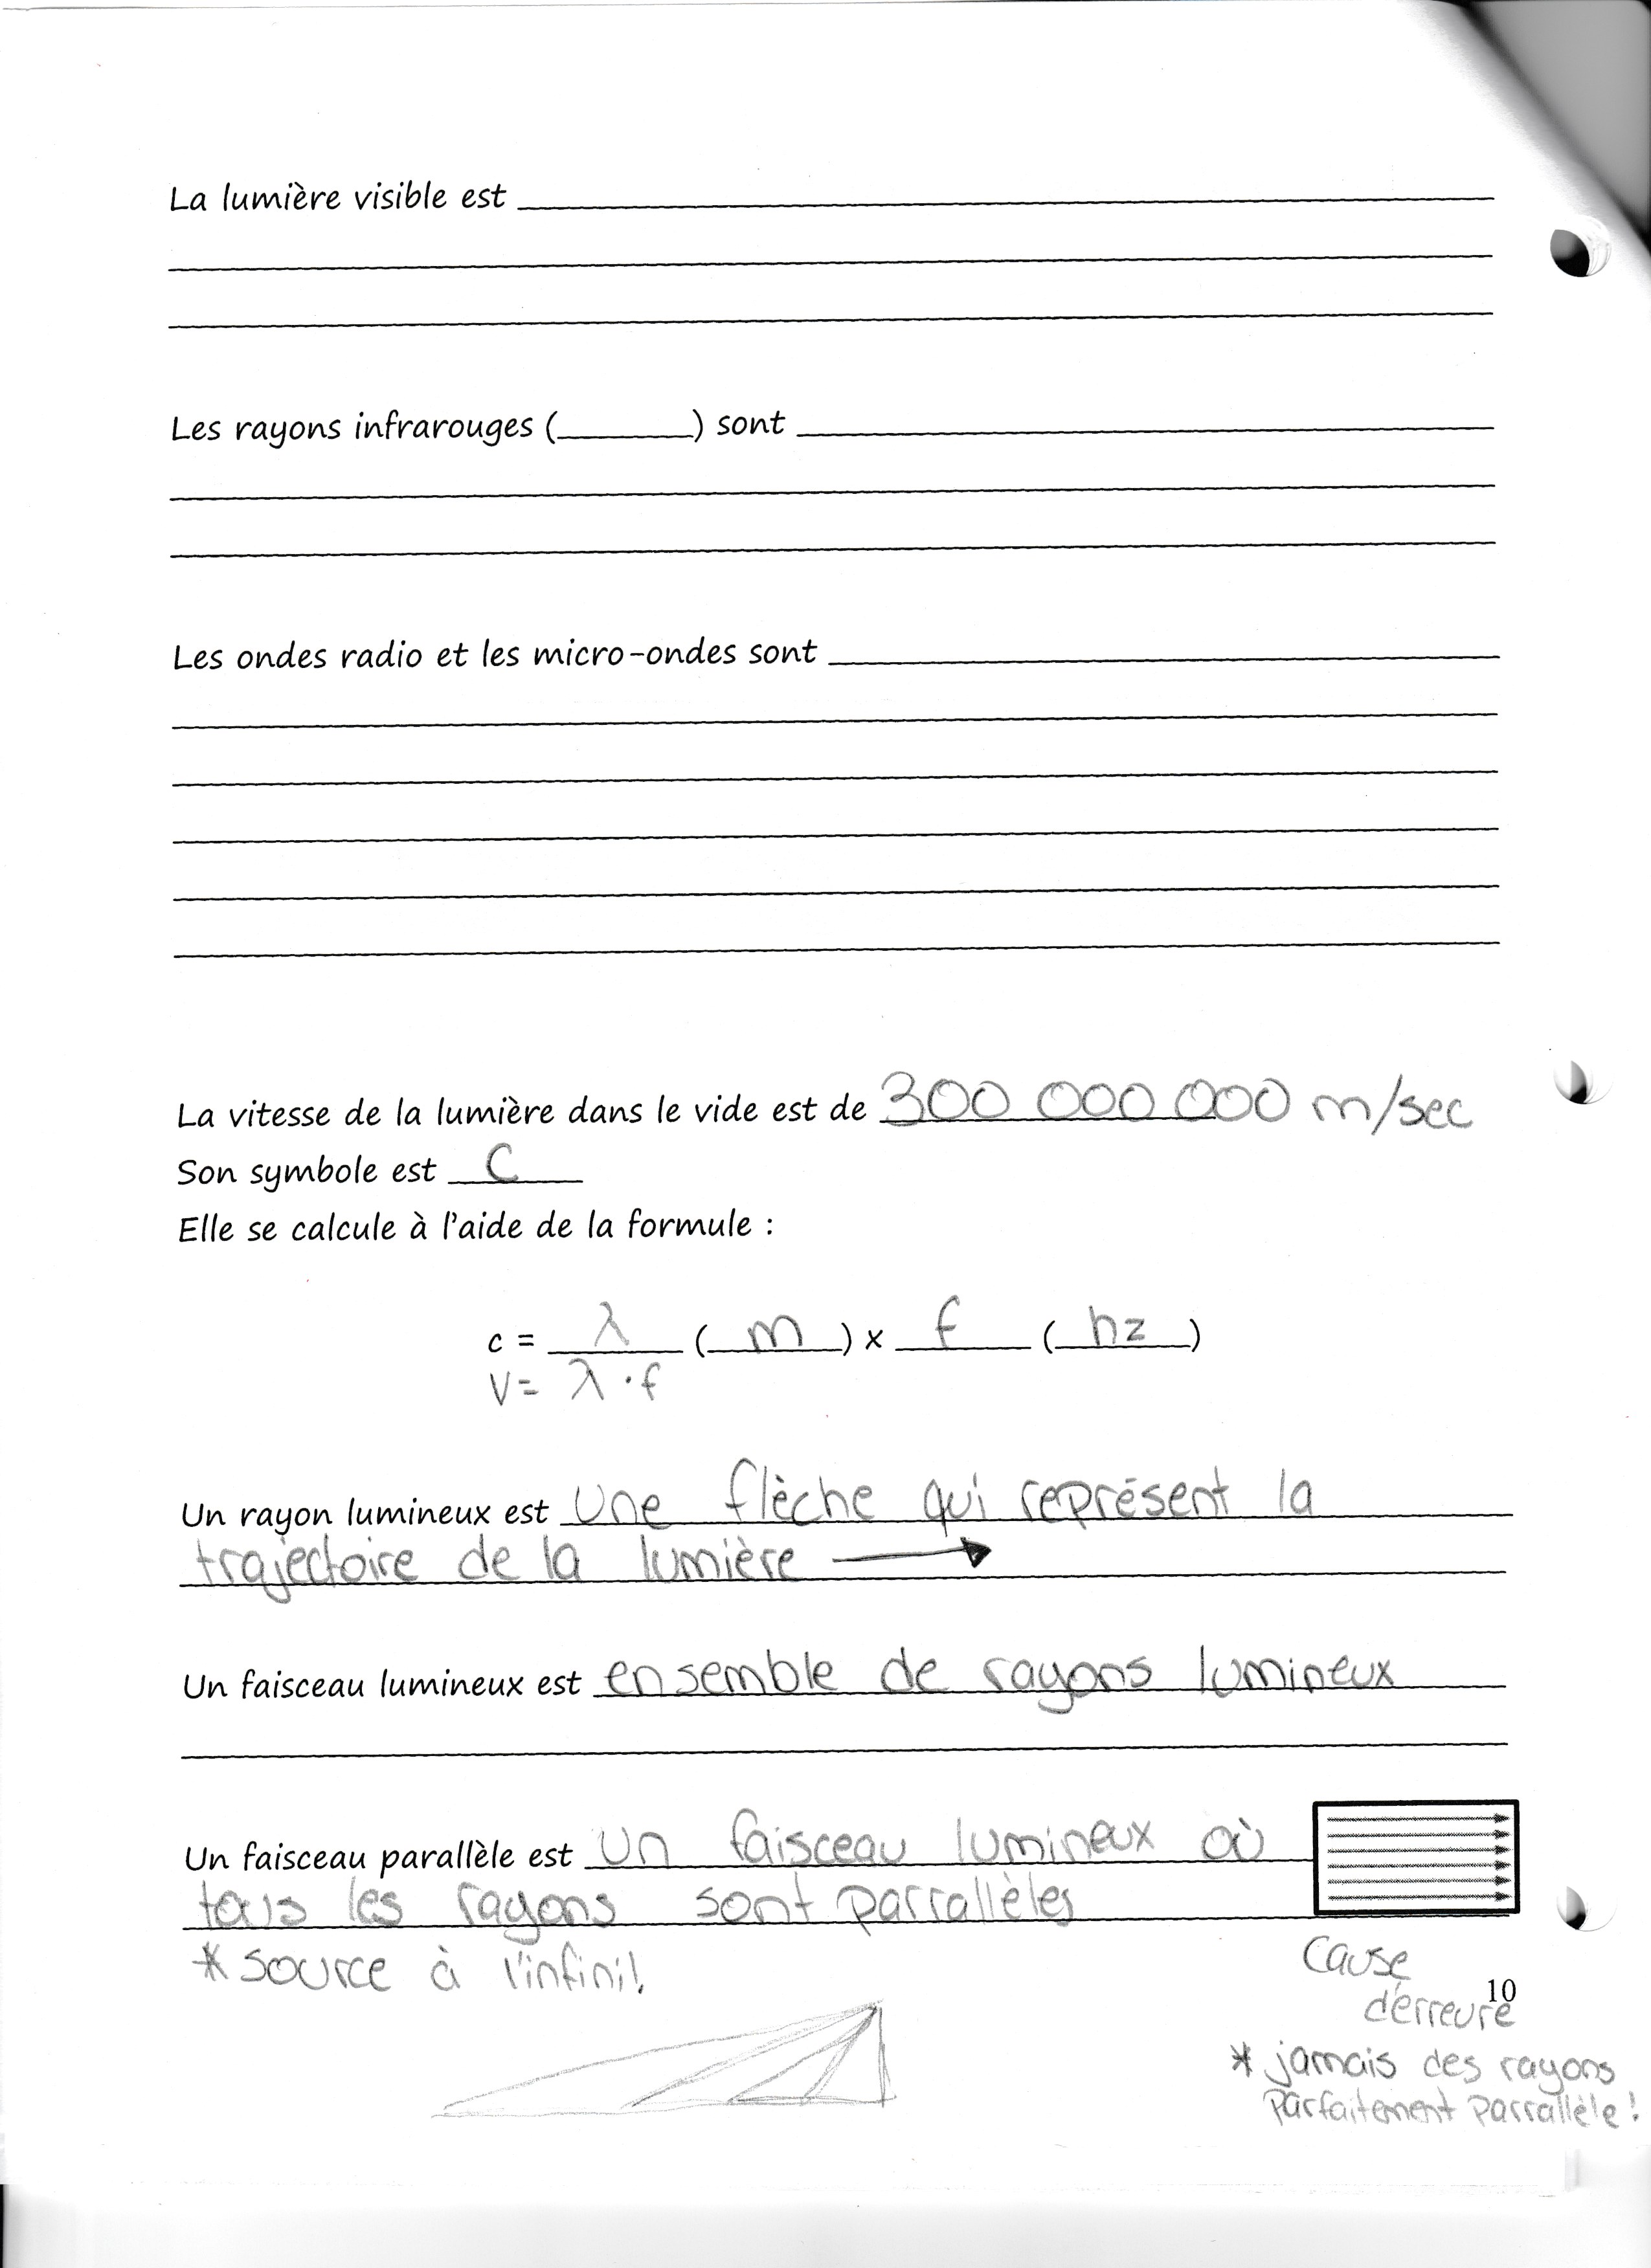 La lumière visible est
Les rayons infrarouges (______) sont
Les ondes radio et les micro-ondes sont
La vitesse de la lumière dans le vide est de 300 000 000 m/sec
Son symbole est C
Elle se calcule à l'aide de la formule :
c = λ (m) x f (hz)
V = λ · f
Un rayon lumineux est une flèche qui représent la
trajectoire de la lumière →
Un faisceau lumineux est ensemble de rayons lumineux
Un faisceau parallèle est un faisceau lumineux où
tous les rayons sont parrallèles
* source à l'infini!
Cause
d'erreure
10
* jamais des rayons
parfaitement parrallèle!